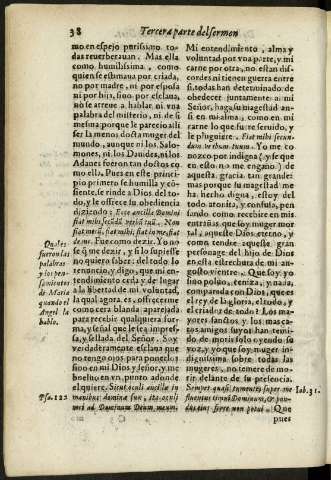 38 Tercera parte del sermon
mo en espejo purissimo to-
das reuerberauan. Mas ella
como humilissima, como
quien se estimaua por criada,
no por madre, ni por esposa
ni por hija, sino por esclaua,
no se atreue a hablar, ni vna
palabra del misterio, ni de si
misma porque le parecio alli
ser la menos docta muger del
mundo, aunque ni los Salo-
mones, ni los Dauides, ni los
Adanes fueron tan doctos co
mo ella. Pues en este princi-
pio primero se humilla y có-
siente, se rinde a Dios del to-
do, y le offresce su obediencia
diziendo: Ecce ancilla Domini
fiat mihi secundū verbū tuū. Non
fiat
de mi. Fue como dezir. Yo no
se q̃ me dezir, y si lo supiesse
no quiero saber: del todo lo
renuncio, y digo, que mi en-
tendimiento cerda y de lugar
a la libertad de mi voluntad,
la qual agora es, offrecerme
como cera blanda aparejada
para recebir qualquiera for-
ma, y señal que le sea impres-
sa, y sellada del Señor. Soy
verdaderamente esclaua que
no tengo ojos para ponerlos
sino en mi Dios y señor, y me
bueluo en vn punto adonde
el quiere. Sicut oculi ancillæ in
manibus dominæ suæ, ita oculi
mei ad Dominum Deum meum.
Quales
fueron las
palabras
y los pen-
samientos
de Maria
quando el
Angel la
hablo.
Psa. 122
Mi entendimiento, alma y
voluntad por vna parte, y mi
carne por otra, no estan dis-
cordes ni tienen guerra entre
si todas han determinado de
obedecer juntamente a mi
Señor, haga su magestad an-
si en mi alma, como en mi
carne lo que fuere seruido, y
le pluguiere. Fiat mihi secun-
dum verbum tuum. Yo me co
nozco por indigna (y se que
en esto no me engaño) de
aquesta gracia tan grande:
mas porque su magestad me
ha hecho digna, estoy del
todo atonita, y confusa, pen-
sando como recebire en mis
entrañas que soy muger mor
tal, aqueste Dios eterno, y
como tendre aqueste gran
personage del hijo de Dios
en esta estrechura de mi an-
gosto vientre. Que soy yo
sino poluo, ceniza, y nada,
comparada con Dios, que es
el rey de la gloria, el todo, y
el criador de todo? Los ma-
yores sanctos y los mas ca-
ros amigos suyos han teni-
do de morirse solo oyendo su
voz, y yo que soy muger in-
dignissima sobre todas las
mugeres, no temere de mo-
rir delante de su presencia.
Semper quasi tumentes super me
fluctus timui Dominum, & pon-
dus eius ferre non potui. Que
Iob. 31.
pues